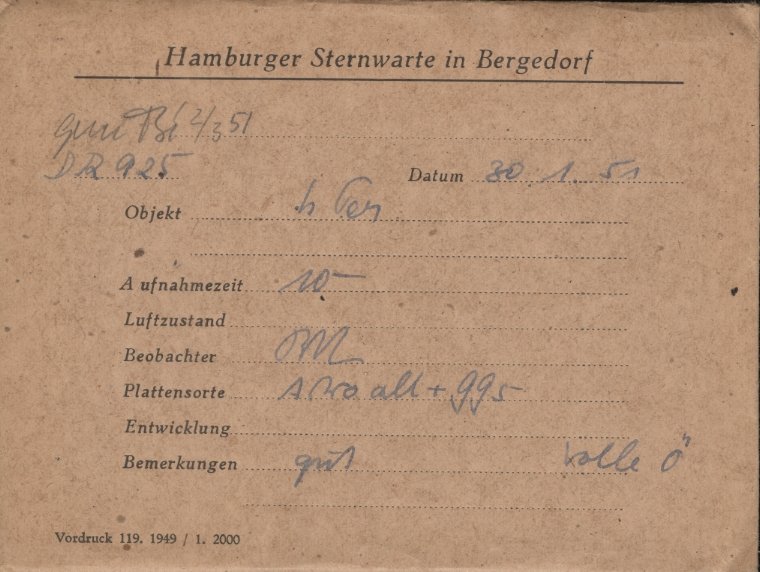 Hamburger Sternwarte in Bergedorf
gem Bi 2/3 51
DR 925 Datum 30. 1. 51
Objekt h Per
Aufnahmezeit 10
Luftzustand
Beobachter
Plattensorte alt + 995
Entwicklung
Bemerkungen gut volle Ö
Vordruck 119. 1949 / 1. 2000